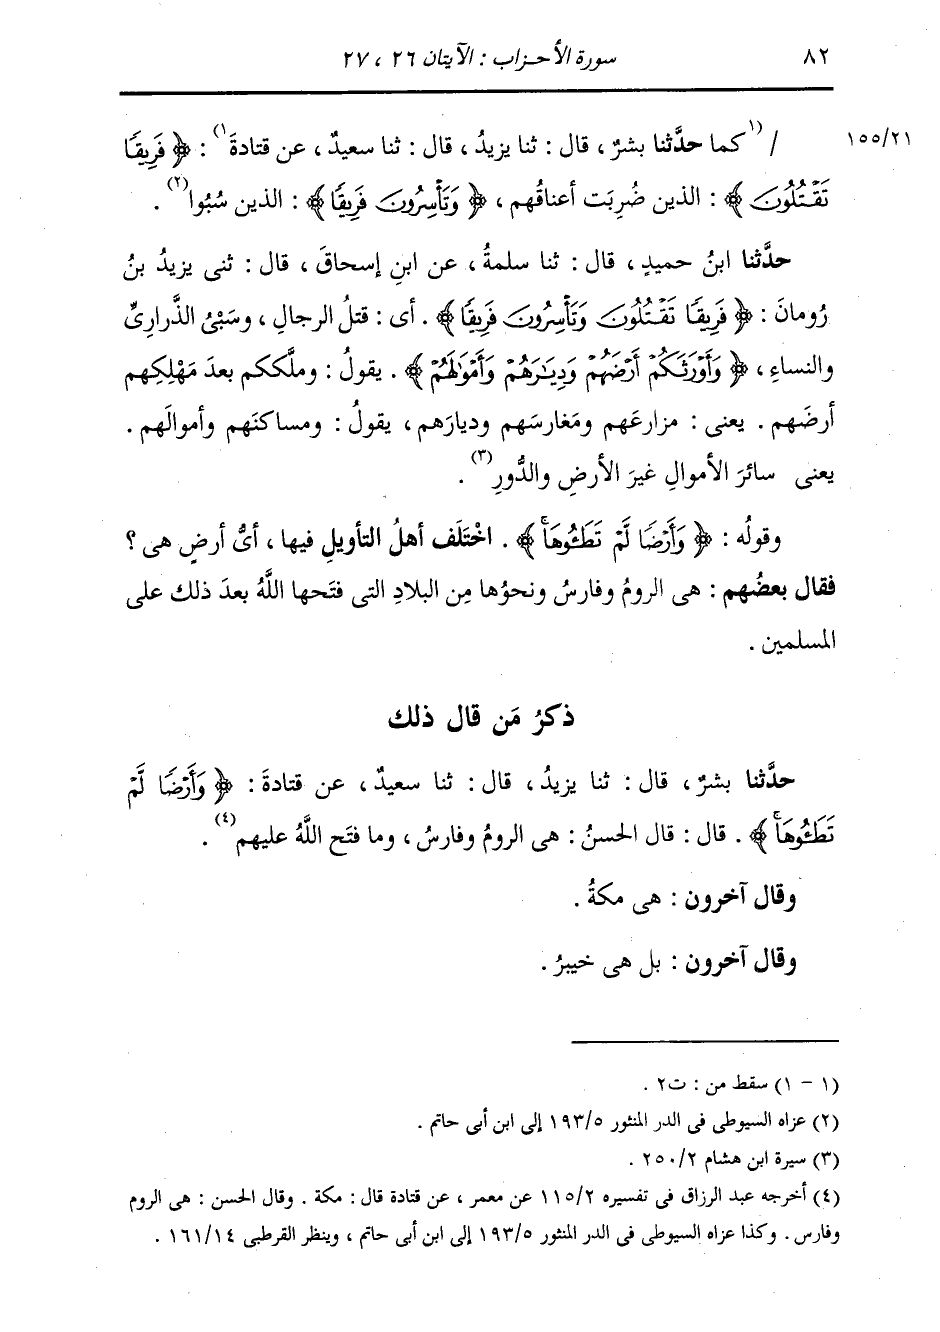 ٨٢ سورة الأحزاب : الآيتان ٢٦ ، ٢٧
١٥٥/٢١ / (١كما حدَّثنا بشرٌ ، قال : ثنا يزيدُ ، قال : ثنا سعيدٌ ، عن قتادةَ١) : ﴿ فَرِيقًا
تَقْتُلُونَ ﴾ : الذين ضُرِبَت أعناقُهم ، ﴿ وَتَأْسِرُونَ فَرِيقًا ﴾ : الذين سُبُوا(٢) .
حدَّثنا ابنُ حميدٍ ، قال : ثنا سلمةُ ، عن ابنِ إسحاقَ ، قال : ثنى يزيدُ بنُ
رُومانَ : ﴿ فَرِيقًا تَقْتُلُونَ وَتَأْسِرُونَ فَرِيقًا ﴾ . أى : قتلُ الرجالِ ، وسَبْىُ الذَّرارىِّ
والنساءِ ، ﴿ وَأَوْرَثَكُمْ أَرْضَهُمْ وَدِيَٰرَهُمْ وَأَمْوَٰلَهُمْ ﴾ . يقولُ : وملَّككم بعدَ مَهْلِكِهم
أرضَهم . يعنى : مزارعَهم ومَغارسَهم وديارَهم ، يقولُ : ومساكنَهم وأموالَهم .
يعنى سائرَ الأموالِ غيرَ الأرضِ والدُّورِ(٣) .
وقولُه : ﴿ وَأَرْضًا لَّمْ تَطَـُٔوهَاۚ ﴾ . اخْتَلَف أهلُ التأويلِ فيها ، أىُّ أرضٍ هى ؟
فقال بعضُهم : هى الرومُ وفارسُ ونحوُها مِن البلادِ التى فتَحها اللَّهُ بعدَ ذلك على
المسلمين .
ذكرُ مَن قال ذلك
حدَّثنا بشرٌ ، قال : ثنا يزيدُ ، قال : ثنا سعيدٌ ، عن قتادةَ : ﴿ وَأَرْضًا لَّمْ
تَطَـُٔوهَاۚ ﴾ . قال : قال الحسنُ : هى الرومُ وفارسُ ، وما فتَح اللَّهُ عليهم(٤) .
وقال آخرون : هى مكةُ .
وقال آخرون : بل هى خيبرُ .
(١ - ١) سقط من : ت٢ .
(٢) عزاه السيوطى فى الدر المنثور ١٩٣/٥ إلى ابن أبى حاتم .
(٣) سيرة ابن هشام ٢٥٠/٢ .
(٤) أخرجه عبد الرزاق فى تفسيره ١١٥/٢ عن معمر ، عن قتادة قال : مكة . وقال الحسن : هى الروم
وفارس . وكذا عزاه السيوطى فى الدر المنثور ١٩٣/٥ إلى ابن أبى حاتم ، وينظر القرطبى ١٦١/١٤ .